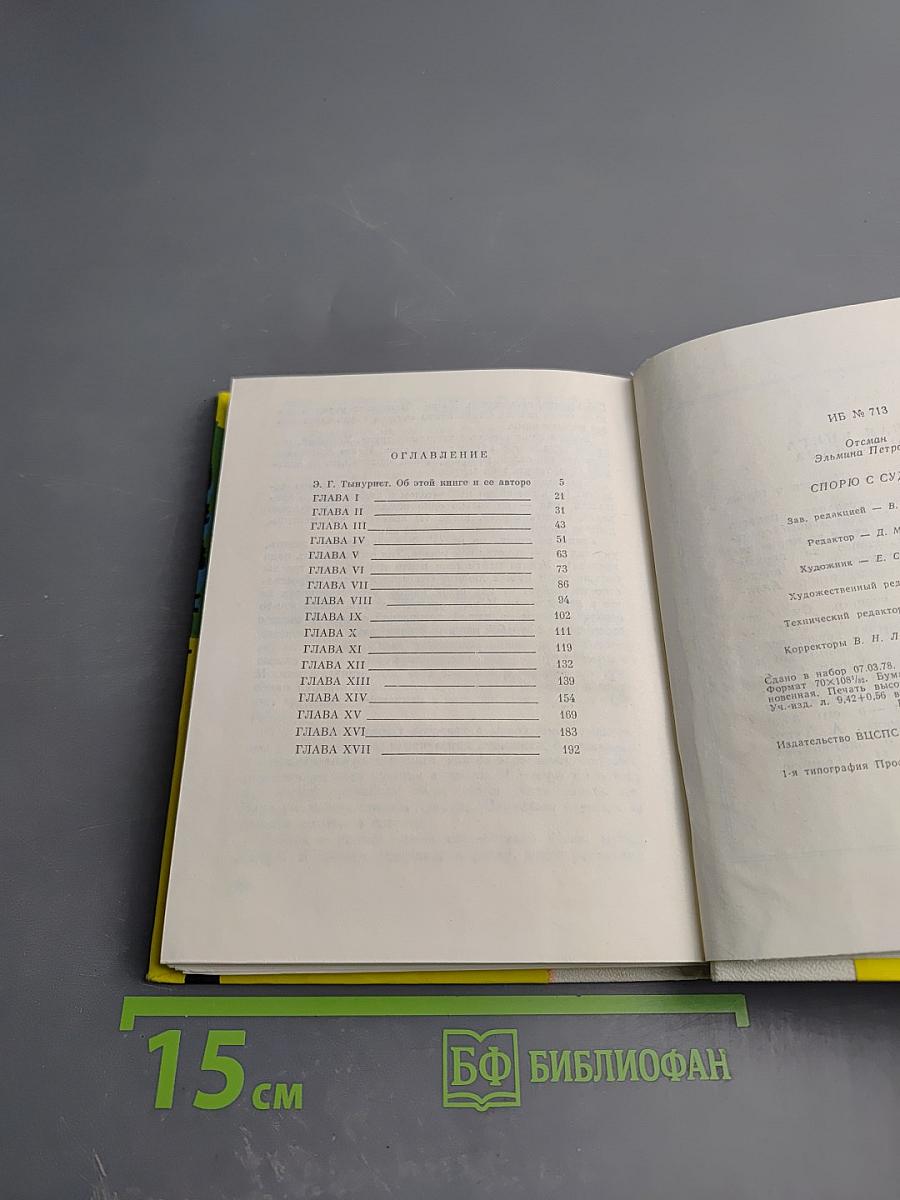 ОГЛАВЛЕНИЕ
Э. Г. Тынурист. Об этой книге и ее авторе 5
ГЛАВА I 21
ГЛАВА II 31
ГЛАВА III 43
ГЛАВА IV 51
ГЛАВА V 63
ГЛАВА VI 73
ГЛАВА VII 86
ГЛАВА VIII 94
ГЛАВА IX 102
ГЛАВА X 111
ГЛАВА XI 119
ГЛАВА XII 132
ГЛАВА XIII 139
ГЛАВА XIV 154
ГЛАВА XV 169
ГЛАВА XVI 183
ГЛАВА XVII 192
ИБ № 713
Отсман
Эльмина Петро
СПОРЮ С СУД
Зав. редакцией — В.
Редактор — Д. М
Художник — Е. С
Художественный ред
Технический редактор
Корректоры В. Н. Л
Сдано в набор 07.03.78.
Формат 70×108¹/₃₂. Бум
новенная. Печать высо
Уч.-изд. л. 9,42+0,56 в
Издательство ВЦСПС
1-я типография Проф
15 см
БФ БИБЛИОФАН